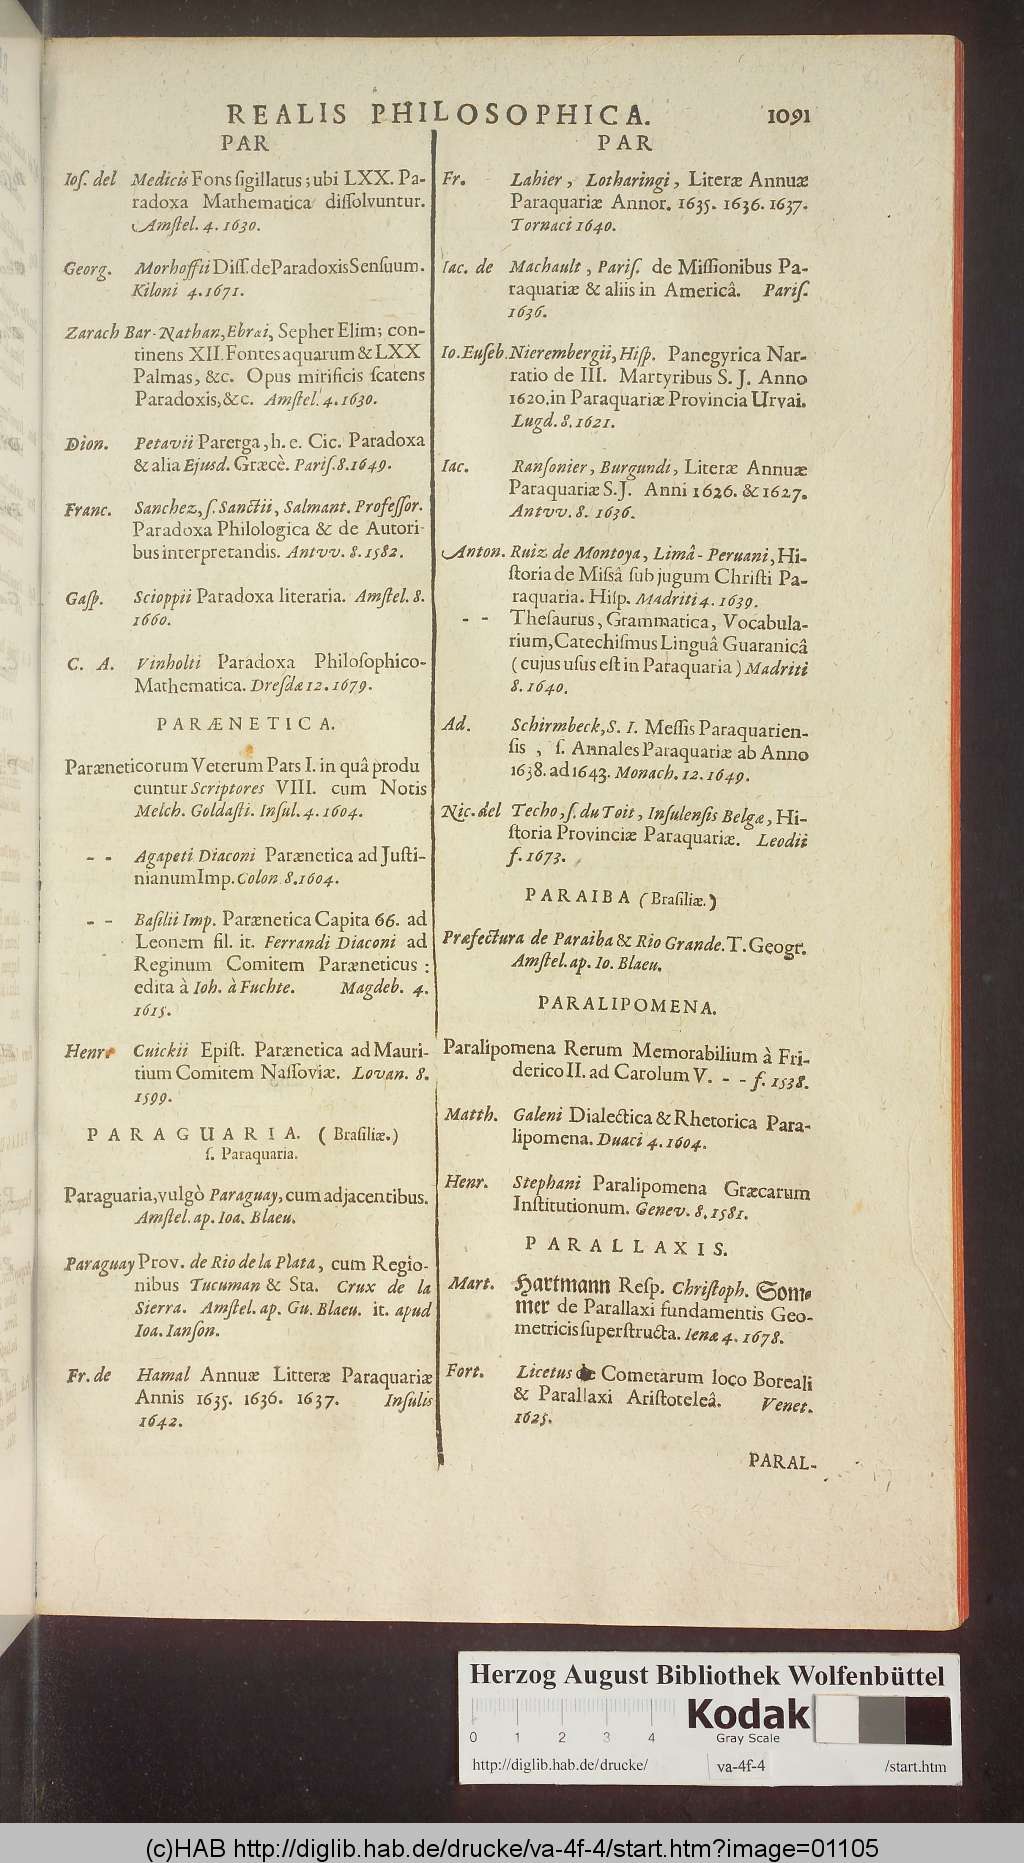 REALIS PHILOSOPHICA. 1091
PAR
Ioſ. del Medicis Fons ſigillatus; ubi LXX. Pa-
radoxa Mathematica diſſolvuntur.
Amſtel. 4. 1630.
Georg. Morhoffii Diſſ. de Paradoxis Senſuum.
Kiloni 4. 1671.
Zarach Bar-Nathan, Ebræi, Sepher Elim; con-
tinens XII. Fontes aquarum & LXX
Palmas, &c. Opus mirificis ſcatens
Paradoxis, &c. Amſtel. 4. 1630.
Dion. Petavii Parerga, h. e. Cic. Paradoxa
& alia Ejusd. Græcè. Pariſ. 8. 1649.
Franc. Sanchez, ſ. Sanctii, Salmant. Profeſſor.
Paradoxa Philologica & de Autori-
bus interpretandis. Antvv. 8. 1582.
Gaſp. Scioppii Paradoxa literaria. Amſtel. 8.
1660.
C. A. Vinholti Paradoxa Philoſophico-
Mathematica. Dreſdæ 12. 1679.
PARÆNETICA.
Paræneticorum Veterum Pars I. in quâ produ
cuntur Scriptores VIII. cum Notis
Melch. Goldaſti. Inſul. 4. 1604.
- - Agapeti Diaconi Parænetica ad Juſti-
nianum Imp. Colon 8. 1604.
- - Baſilii Imp. Parænetica Capita 66. ad
Leonem fil. it. Ferrandi Diaconi ad
Reginum Comitem Paræneticus:
edita à Ioh. à Fuchte. Magdeb. 4.
1615.
Henr. Cuickii Epiſt. Parænetica ad Mauri-
tium Comitem Naſſoviæ. Lovan. 8.
1599.
PARAGUARIA. (Braſiliæ.)
ſ. Paraquaria.
Paraguaria, vulgò Paraguay, cum adjacentibus.
Amſtel. ap. Ioa. Blaeu.
Paraguay Prov. de Rio de la Plata, cum Regio-
nibus Tucuman & Sta. Crux de la
Sierra. Amſtel. ap. Gu. Blaeu. it. apud
Ioa. Ianſon.
Fr. de Hamal Annuæ Litteræ Paraquariæ
Annis 1635. 1636. 1637. Inſulis
1642.
PAR
Fr. Lahier, Lotharingi, Literæ Annuæ
Paraquariæ Annor. 1635. 1636. 1637.
Tornaci 1640.
Iac. de Machault, Pariſ. de Miſſionibus Pa-
raquariæ & aliis in Americâ. Pariſ.
1636.
Io. Euſeb. Nierembergii, Hiſp. Panegyrica Nar-
ratio de III. Martyribus S. J. Anno
1620. in Paraquariæ Provincia Urvai.
Lugd. 8. 1621.
Iac. Ranſonier, Burgundi, Literæ Annuæ
Paraquariæ S. J. Anni 1626. & 1627.
Antvv. 8. 1636.
Anton. Ruiz de Montoya, Limâ-Peruani, Hi-
ſtoria de Miſsâ ſub jugum Chriſti Pa-
raquaria. Hiſp. Madriti 4. 1639.
- - Theſaurus, Grammatica, Vocabula-
rium, Catechiſmus Linguâ Guaranicâ
(cujus uſus eſt in Paraquaria) Madriti
8. 1640.
Ad. Schirmbeck, S. I. Meſſis Paraquarien-
ſis, ſ. Annales Paraquariæ ab Anno
1638. ad 1643. Monach. 12. 1649.
Nic. del Techo, ſ. du Toit, Inſulenſis Belgæ, Hi-
ſtoria Provinciæ Paraquariæ. Leodii
f. 1673.
PARAIBA (Braſiliæ.)
Præfectura de Paraiba & Rio Grande. T. Geogr.
Amſtel. ap. Io. Blaeu.
PARALIPOMENA.
Paralipomena Rerum Memorabilium à Fri-
derico II. ad Carolum V. - - f. 1538.
Matth. Galeni Dialectica & Rhetorica Para-
lipomena. Duaci 4. 1604.
Henr. Stephani Paralipomena Græcarum
Inſtitutionum. Genev. 8. 1581.
PARALLAXIS.
Mart. Hartmann Reſp. Chriſtoph. Som-
mer de Parallaxi fundamentis Geo-
metricis ſuperſtructa. Ienæ 4. 1678.
Fort. Licetus de Cometarum loco Boreali
& Parallaxi Ariſtoteleâ. Venet.
1625.
PARAL-
Herzog August Bibliothek Wolfenbüttel
Kodak
0 1 2 3 4 Gray Scale
http://diglib.hab.de/drucke/ va-4f-4 /start.htm
(c)HAB http://diglib.hab.de/drucke/va-4f-4/start.htm?image=01105